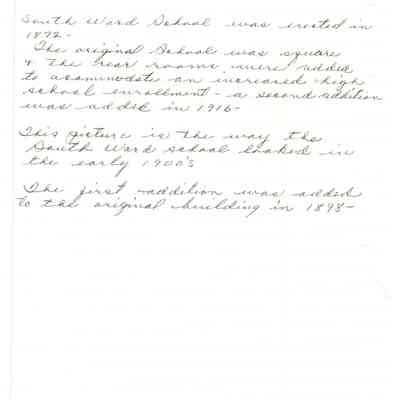 South Ward School was erected in
1892-
The original School was square
& the rear rooms were added
to acommodate an increased high
school enrollment - a second addition
was added in 1916-
This picture is the way the
South Ward School looked in
the early 1900's
The first addition was added
to the original building in 1898-